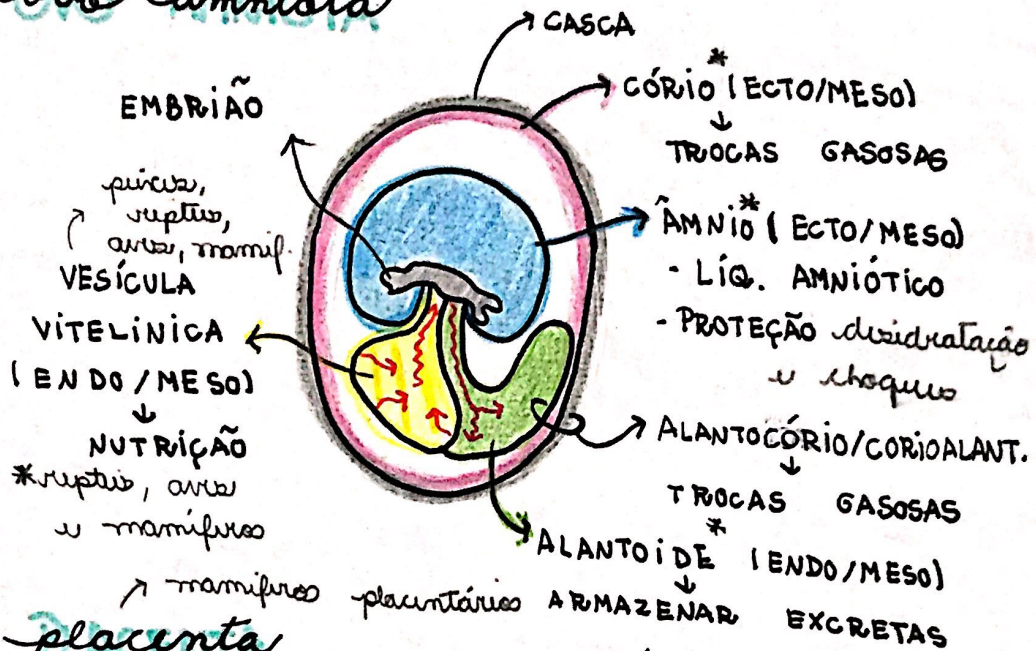 ovo amniota
CASCA
EMBRIÃO
CÓRIO* (ECTO/MESO)
↓
TROCAS GASOSAS
peixes,
repteis,
aves, mamíf.
VESÍCULA
VITELINICA
(ENDO/MESO)
↓
NUTRIÇÃO
*repteis, aves
e mamíferos
ÂMNIO* (ECTO/MESO)
- LÍQ. AMNIÓTICO
- PROTEÇÃO desidratação
e choques
ALANTOCÓRIO/CORIOALANT.
↓
TROCAS GASOSAS
ALANTOIDE* (ENDO/MESO)
↓
ARMAZENAR EXCRETAS
mamíferos placentários
placenta